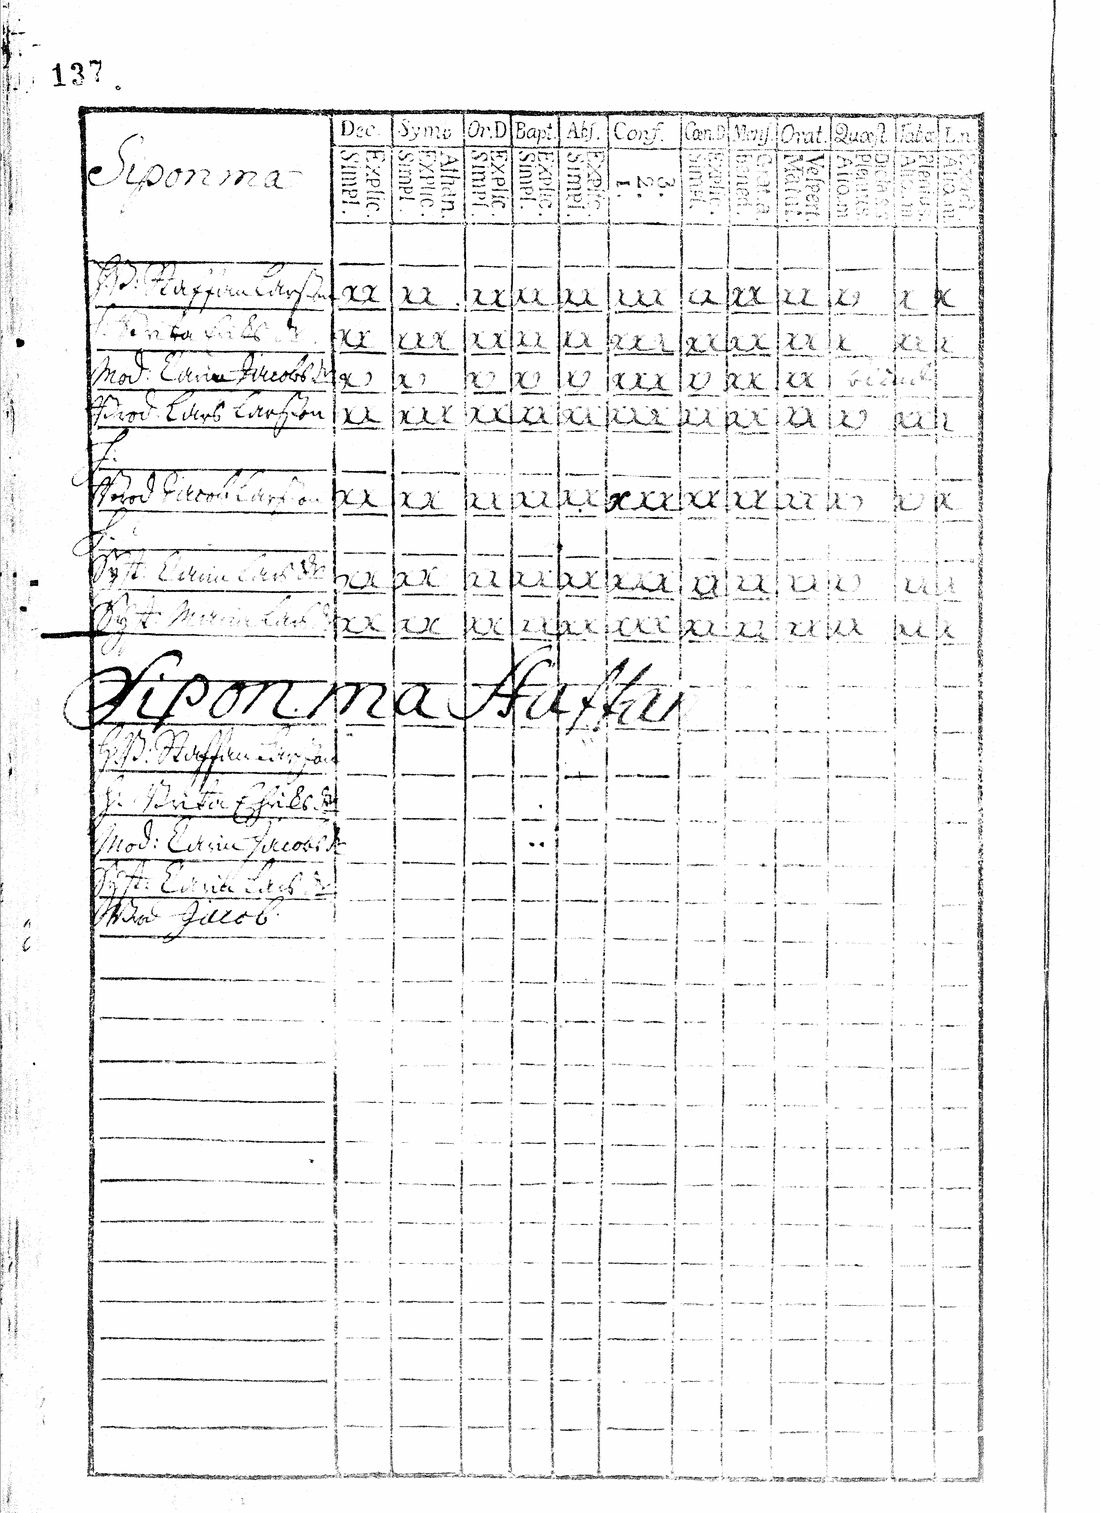 137
Siponma
Dec. Symb Or.D Bapt. Abs. Conf. Cœn.D Mens. Orat. Quæst. Tabæ L.n.
Simpl. Explic. Simpl. Explic. Athan. Simpl. Explic. Simpl. Explic. Simpl. Explic. 1. 2. 3. Simpl. Explic. Bened. Matut. Vesper.
Staffan Larsson xx xx xx xx xx xxx xx xx xx v x x
xx xxx xx xx xx xxx xx xx xx x xx x
Mod. Carin Jacobs dr v v v v v xxx v xx xx
Brod. Lars Larsson xx xxx xx xx xx xxx xx xx xx v xx x
h.
Brod Jacob Larsson xx xx xx xx xx xxx xx xx xx v v x
h.
Syst. Carin Lars dr xx xx xx xx xx xxx xx xx xx v xx x
Syst. Maria Lars dr xx xx xx xx xx xxx xx xx xx xx xx x
Siponma Staffan
Staffan Larsson
h. Brita Ehriks dr
Mod: Carin Jacobs dr
Syst: Carin Lars dr
Brod Jacob